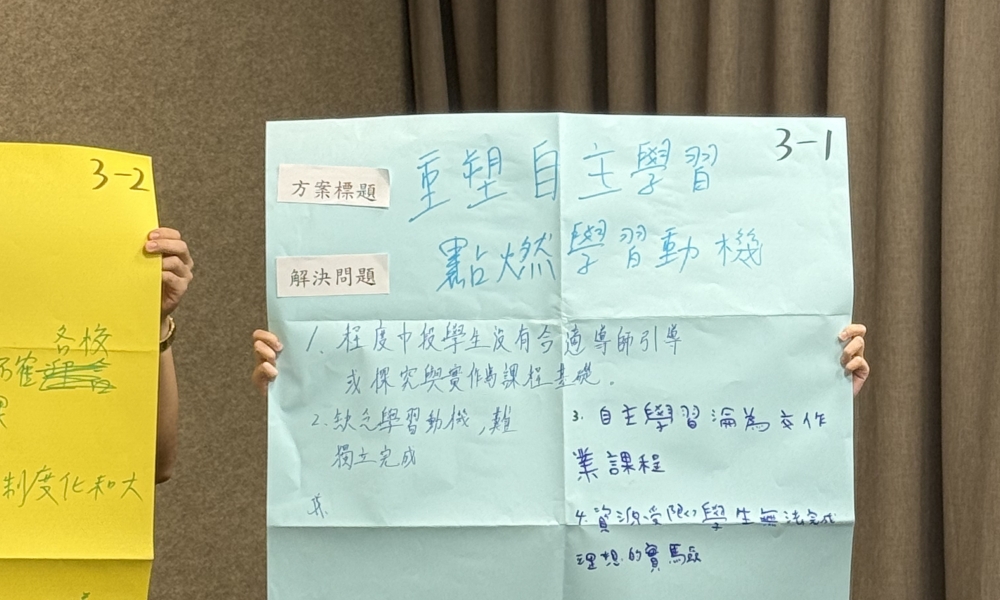 3-2
各校
制度化和大
3-1
方案標題
重塑自主學習
點燃學習動機
解決問題
1. 程度中段學生沒有合適導師引導
或探究與實作為課程基礎。
2. 缺乏學習動機，難
獨立完成
3. 自主學習淪為交作
業課程
4. 資源受限，學生無法完成
理想的實驗